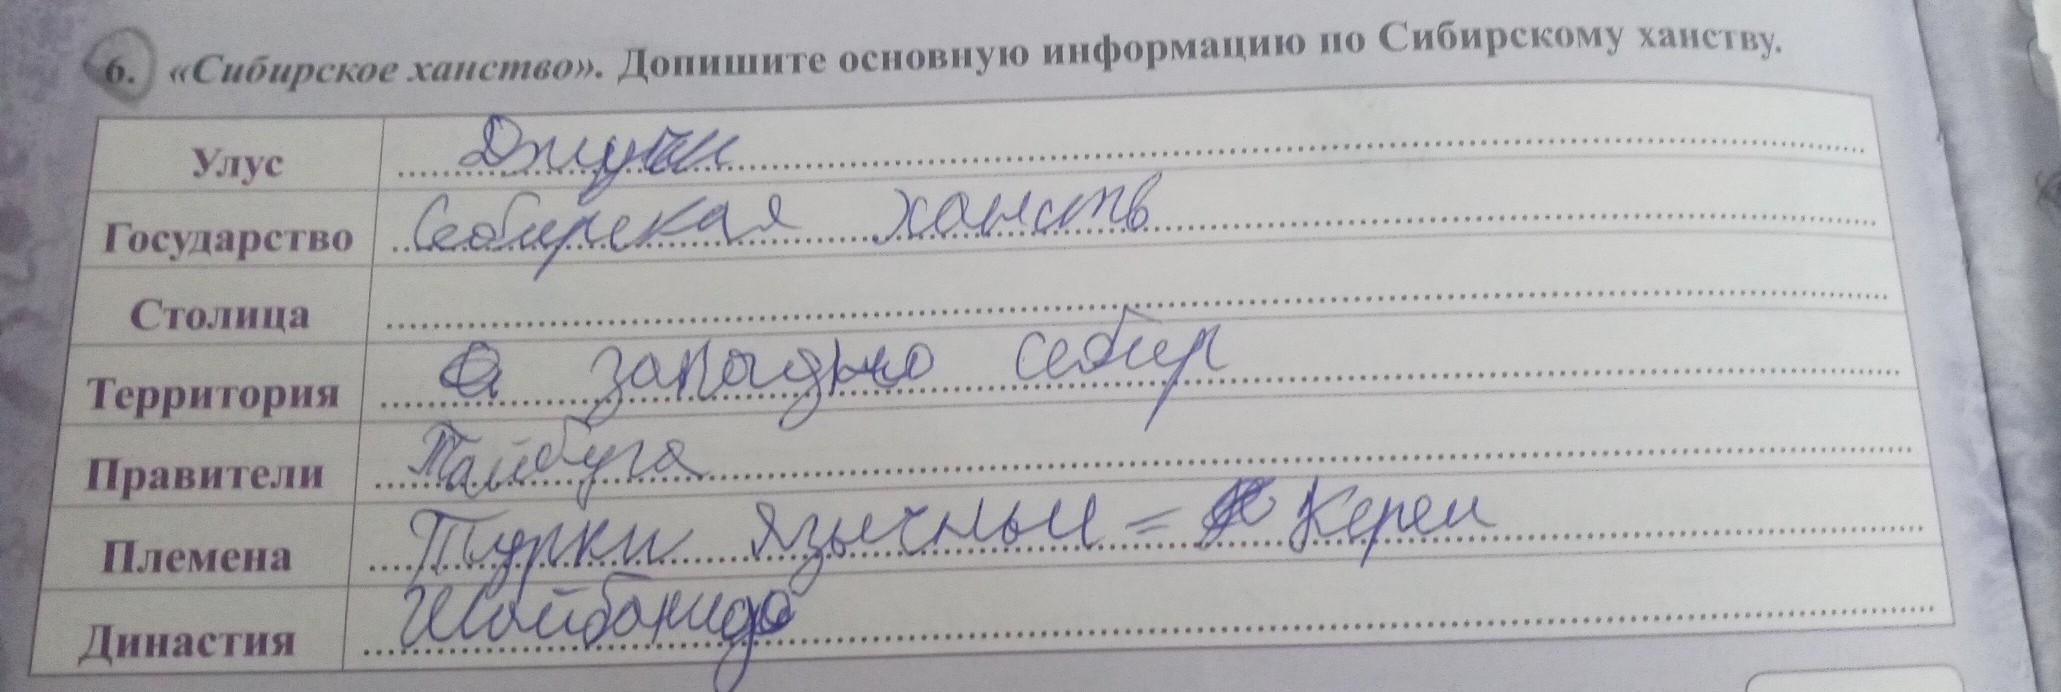 6. «Сибирское ханство». Допишите основную информацию по Сибирскому ханству.
Улус Джучи
Государство Себирская ханств
Столица
Территория западно себир
Правители Тайбуга
Племена Турки язычный = Кереи
Династия Шайбанидо